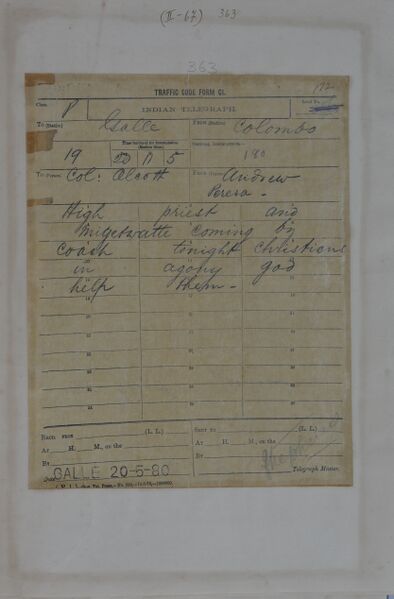 (II-67) 363
363
TRAFFIC CODE FORM CI.
Class P INDIAN TELEGRAPH. Local No.
172
To (Station) Galle From (Station) Colombo
19 5 180
To Person Col: Alcott From Andrew
Perera -
High priest and
coming by
coach tonight christians
in agony god
help them -
RECD FROM (L. L.) SENT TO (L. L.)
AT H. M., on the AT H. M., on the
BY BY
GALLE 20-5-80 Telegraph Master.